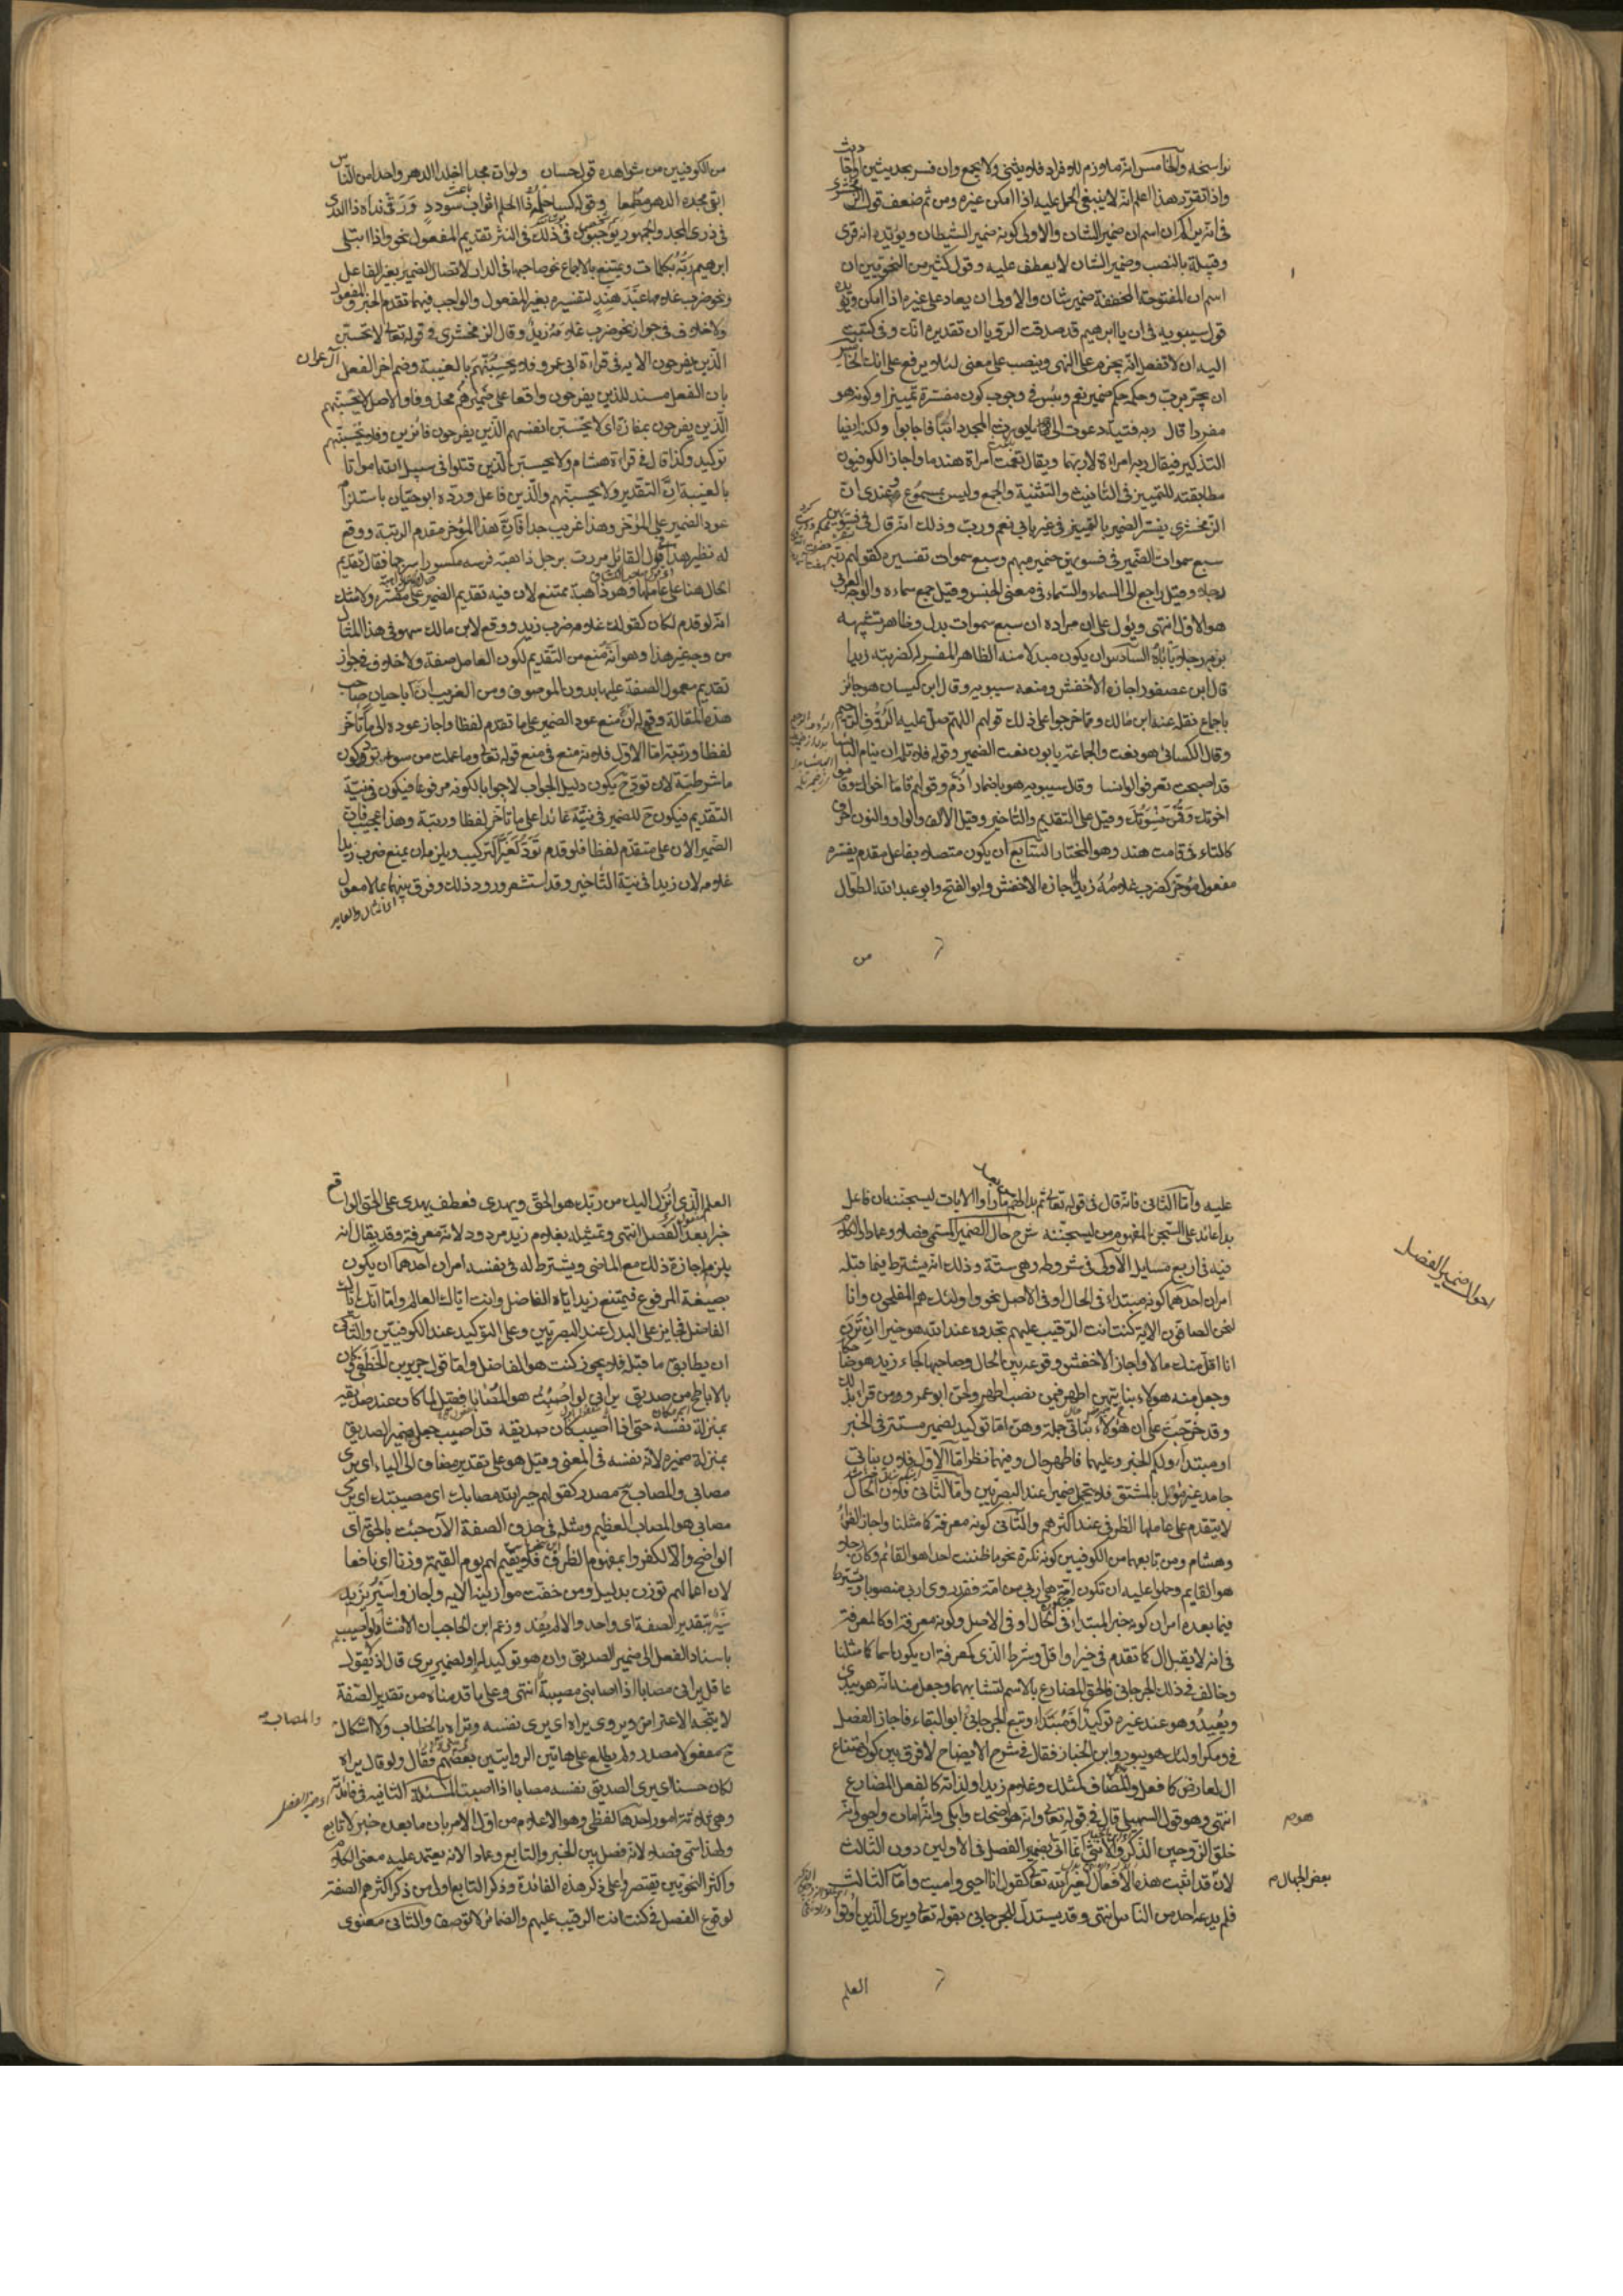 نواسخه والخامس انه ملازم للافراد فلا يثنى ولا يجمع وان فسر بحديثين او احاديث
واذا تقرر هذا علم انه لا ينبغى الحمل عليه اذا امكن غيره ومن ثم ضعف قول الزمخشرى
فى انه يراكم ان اسم ان ضمير الشان والاولى كونه ضمير الشيطان ويؤيده انه قرئ
وقبيله بالنصب وضمير الشان لا يعطف عليه وقول كثير من النحويين ان
اسم ان المفتوحة المخففة ضمير شان والاولى ان يعاد على غيره اذا امكن ويؤيده
قول سيبويه فى ان يا ابرهيم قد صدقت الرؤيا ان تقديره انك وفى كتبت
اليه ان لا تفعل انه يجزم على النهى وينصب على معنى لئلا ويرفع على انك الخامس
ان يجر برب وحكمه حكم ضمير نعم وبئس فى وجوب كون مفسره تمييزا وكونه هو
مفردا قال ربه فتية دعوت الى ما يورث المجد دائبا فاجابوا ولكنه ايضا
التذكير فيقال ربه امراة لا ربها ويقال نعمت امراة هند هذا واجاز الكوفيون
مطابقته للتمييز فى التانيث والتثنية والجمع وليس بمسموع وعندى ان
الزمخشرى يفسر الضمير بالتمييز فى غير بابى نعم ورب وذلك انه قال فى فسويهن
سبع سموات الضمير فى فسويهن ضمير مبهم وسبع سموات تفسيره كقولهم ربه
رجلا وقيل راجع الى السماء والسماء فى معنى الجنس وقيل جمع سماءة والوجه العربى
هو الاول انتهى ويؤل على ان مراده ان سبع سموات بدل وظاهر تشبيهه
بربه رجلا ياباه السادس ان يكون مبدلا منه الظاهر المفسر له كضربته زيدا
قال ابن عصفور اجازه الاخفش ومنعه سيبويه وقال ابن كيسان هو جائز
باجماع نقله عنه ابن مالك ومما خرجوا على ذلك قولهم اللهم صل عليه الرؤف الرحيم
وقال الكسائى هو نعت والجماعة يابون نعت الضمير وقوله فلا تلمه ان ينام البائسا
قد اصبحت تعرفو الوانسا وقال سيبويه هو باضمار اذم وقولهم قاما اخواك وقاموا
اخوتك وقمن نسوتك وقيل على التقديم والتاخير وقيل الالف والواو والنون احرف
كالتاء فى قامت هند وهو المختار السابع ان يكون متصلا بفاعل مقدم يفسره
مفعول مؤخر كضرب غلامه زيدا اجازه الاخفش وابو الفتح وابو عبد الله الطوال
من
من الكوفيين من شواهده قول حسان ولو ان مجدا اخلد الدهر واحدا من الناس
ابقى مجده الدهر مطعما وقوله كسا حلمه ذا الحلم اثواب سودد ورقى نداه ذا الندى
فى ذرى المجد والجمهور يوجبون فى ذلك فى النثر تقديم المفعول نحو واذا ابتلى
ابرهيم ربه بكلمات ويمتنع بالاجماع نحو صاحبها فى الدار لاتصال الضمير بغير الفاعل
ونحو ضرب غلامها عبد هند لتفسيره بغير المفعول والواجب فيهما تقدم الخبر والمفعول
ولا خلاف فى جواز نحو ضرب غلامه زيد وقال الزمخشرى فى قوله تعالى لا تحسبن
الذين يفرحون الاية فى قراءة ابى عمرو فلا يحسبنهم بالغيبة وضم اخر الفعل
آل عمران
بان الفعل مسند للذين يفرحون واقعا على ضميرهم محذوفا والاصل لا يحسبنهم
الذين يفرحون بمفازة اى لا يحسبن انفسهم الذين يفرحون فائزين وفلا يحسبنهم
توكيد وكذا قال فى قراءة هشام ولا يحسبن الذين قتلوا فى سبيل الله امواتا
بالغيبة ان التقدير ولا يحسبنهم والذين فاعل ورده ابو حيان باستلزام
عود الضمير على المؤخر وهذا غريب جدا فان هذا المؤخر مقدم الرتبة ووقع
له نظير هذا فى قول القائل مررت برجل ذاهبة فرسه مكسورا سرجها فقال تقديم
الحال هنا على عاملها وهو ذاهبة ممتنع لان فيه تقديم الضمير على مفسره ولا شك
انه لو قدم لكان كقولك غلامه ضرب زيد ووقع لابن مالك سهو فى هذا المثال
من وجه غير هذا وهو انه منع من التقديم لكون العامل صفة ولا خلاف فى جواز
تقديم معمول الصفة عليها بدون الموصوف ومن الغريب ان ابا حيان صاحب
هذه المقالة وقع له انه منع عود الضمير على ما تقدم لفظا واجاز عوده الى ما تاخر
لفظا ورتبة اما الاول فلانه منع فى منع قوله تعالى وما عملت من سوء تود كون
ما شرطية لان تود ح يكون دليل الجواب لا جوابا لكونه مرفوعا فيكون فى نية
التقديم فيكون ح للضمير فى نية عائدا على ما تاخر لفظا ورتبة وهذا عجيب فان
الضمير الان على متقدم لفظا فلو قدم تود لغير التركيب ويلزمه ان يمنع ضرب زيدا
غلامه لان زيدا فى نية التاخير وقد استشعر ورود ذلك وفرق بينهما بما لا معول
عليه واما الثانى فانه قال فى قوله تعالى ثم بدا لهم من بعد ما راوا الايات ليسجننه ان فاعل
بدا عائد على السجن المفهوم من ليسجننه شرح حال الضمير المسمى فصلا وعمادا والكلام
احوال ضمير الفصل
فيه فى اربع مسايل الاولى فى شروطه وهى ستة وذلك انه يشترط فيما قبله
امران احدهما كونه مبتداء فى الحال او فى الاصل نحو واولئك هم المفلحون وانا
لنحن الصافون الاية كنت انت الرقيب عليهم تجدوه عند الله هو خيرا ان ترن
انا اقل منك مالا واجاز الاخفش وقوعه بين الحال وصاحبها كجاء زيد هو ضاحكا
وجعل منه هولاء بناتى هن اطهر فيمن نصب اطهر ولحن ابو عمرو من قرا بذلك
وقد خرجت على ان هؤلاء بناتى جملة وهن اما توكيد لضمير مستتر فى الخبر
او مبتداء ولكم الخبر وعليهما فاطهر حال وفيهما نظر اما الاول فلان بناتى
جامد غير مؤول بالمشتق فلا يتحمل ضميرا عند البصريين واما الثانى فلان الحال
لا يتقدم على عاملها الظرفى عند اكثرهم والثانى كونه معرفة كما مثلنا واجاز الفراء
وهشام ومن تابعهما من الكوفيين كونه نكرة نحو ما ظننت احدا هو القائم وكان رجلا
هو القايم وحملوا عليه ان تكون امة هى اربى من امة فقدروى اربى منصوبا ويشترط
فيما بعده امران كونه خبر المبتداء فى الحال او فى الاصل وكونه معرفة او كالمعرفة
فى انه لا يقبل ال كما تقدم فى خيرا واقل وشرط الذى كمعرفة ان يكون اسما كما مثلنا
وخالف فى ذلك الجرجانى فالحق المضارع بالاسم لتشابههما وجعل منه انه هو يبدئ
ويعيد وهو عند غيره توكيد او مبتداء وتبع الجرجانى ابو البقاء فاجاز الفصل
فى ومكر اولئك هو يبور وابن الخباز فقال فى شرح الايضاح لا فرق بين كون امتناع
ال لعارض كافعل والمضاف كمثلك وغلام زيد او لذاته كالفعل المضارع
انتهى وهو قول السهيلى قال فى قوله تعالى وانه هو اضحك وابكى وانه امات واحيى وانه
هو م
خلق الزوجين الذكر والانثى انما اتى بضمير الفصل فى الاولين دون الثالث
لان قد اثبت هذه الافعال لغير الله تعالى كقول انا احيى واميت واما الثالث
بعض الجهال م
فلم يدعه احد من الناس انتهى وقد يستدل للجرجانى بقوله تعالى ويرى الذين اوتوا
العلم
العلم الذى انزل اليك من ربك هو الحق ويهدى فعطف يهدى على الحق الواقع
خبرا بعد الفصل انتهى وتمثيله بغلام زيد مردود لانه معرفة وقد يقال انه
يلزم اجازة ذلك مع الماضى ويشترط له فى نفسه امران احدهما ان يكون
بصيغة المرفوع فيمتنع زيد اياه الفاضل وانت اياك العالم واما انك اياك
الفاضل فجايز على البدل عند البصريين وعلى التوكيد عند الكوفيين والثانى
ان يطابق ما قبله فلا يجوز كنت هو الفاضل واما قول جرير بن الخطفى وكائن
بالاباطح من صديق يرانى لو اصبت هو المصابا فقيل لما كان عند صديقه
بمنزلة نفسه حتى اذا اصيب كان صديقه قد اصيب جعل ضمير الصديق
بمنزلة ضميره لانه نفسه فى المعنى وقيل هو على تقدير مضاف الى الياء اى يرى
مصابى والمصاب ح مصدر كقولهم جبر الله مصابك اى مصيبتك اى يرى
مصابى هو المصاب العظيم ومثله فى حذف الصفة الآن جئت بالحق اى
الواضح والا لكفروا بمفهوم الظرف فلا نقيم لهم يوم القيمة وزنا اى نافعا
لان اعمالهم توزن بدليل ومن خفت موازينه الاية واجازوا سير بزيد
سير بتقدير الصفة اى واحد والا لم يفد وزعم ابن الحاجب ان الانشاد لو اصيب
باسناد الفعل الى ضمير الصديق وان هو توكيد له او لضمير يرى قال اذ لا يقول
عاقل يرانى مصابا اذا اصابتنى مصيبة انتهى وعلى ما قدمناه من تقدير الصفة
لا يتجه الاعتراض ويروى يراه اى يرى نفسه وتراه بالخطاب ولا اشكال
والمصاب
ح مفعول لا مصدر ولم يطلع على هاتين الروايتين بعضهم فقال ولو قال يراه
لكان حسنا اى يرى الصديق نفسه مصابا اذا اصبت المسئلة الثانية فى فائدته
وهى ثلاثة امور احدها لفظى وهو الاعلام من اول الامر بان ما بعده خبر لا تابع
ولهذا سمى فصلا لانه فصل بين الخبر والتابع وعمادا لانه يعتمد عليه معنى الكلام
واكثر النحويين يقتصر على ذكر هذه الفائدة وذكر التابع اولى من ذكر اكثرهم الصفة
لوقوع الفصل فى كنت انت الرقيب عليهم والضمائر لا توصف والثانى معنوى